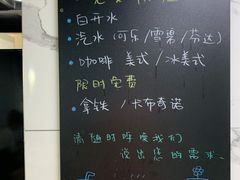 白开水
汽水(可乐/雪碧/芬达)
咖啡 美式/冰美式
限时免费
拿铁/卡布奇诺
请随时呼唤我们
说出您的需求.